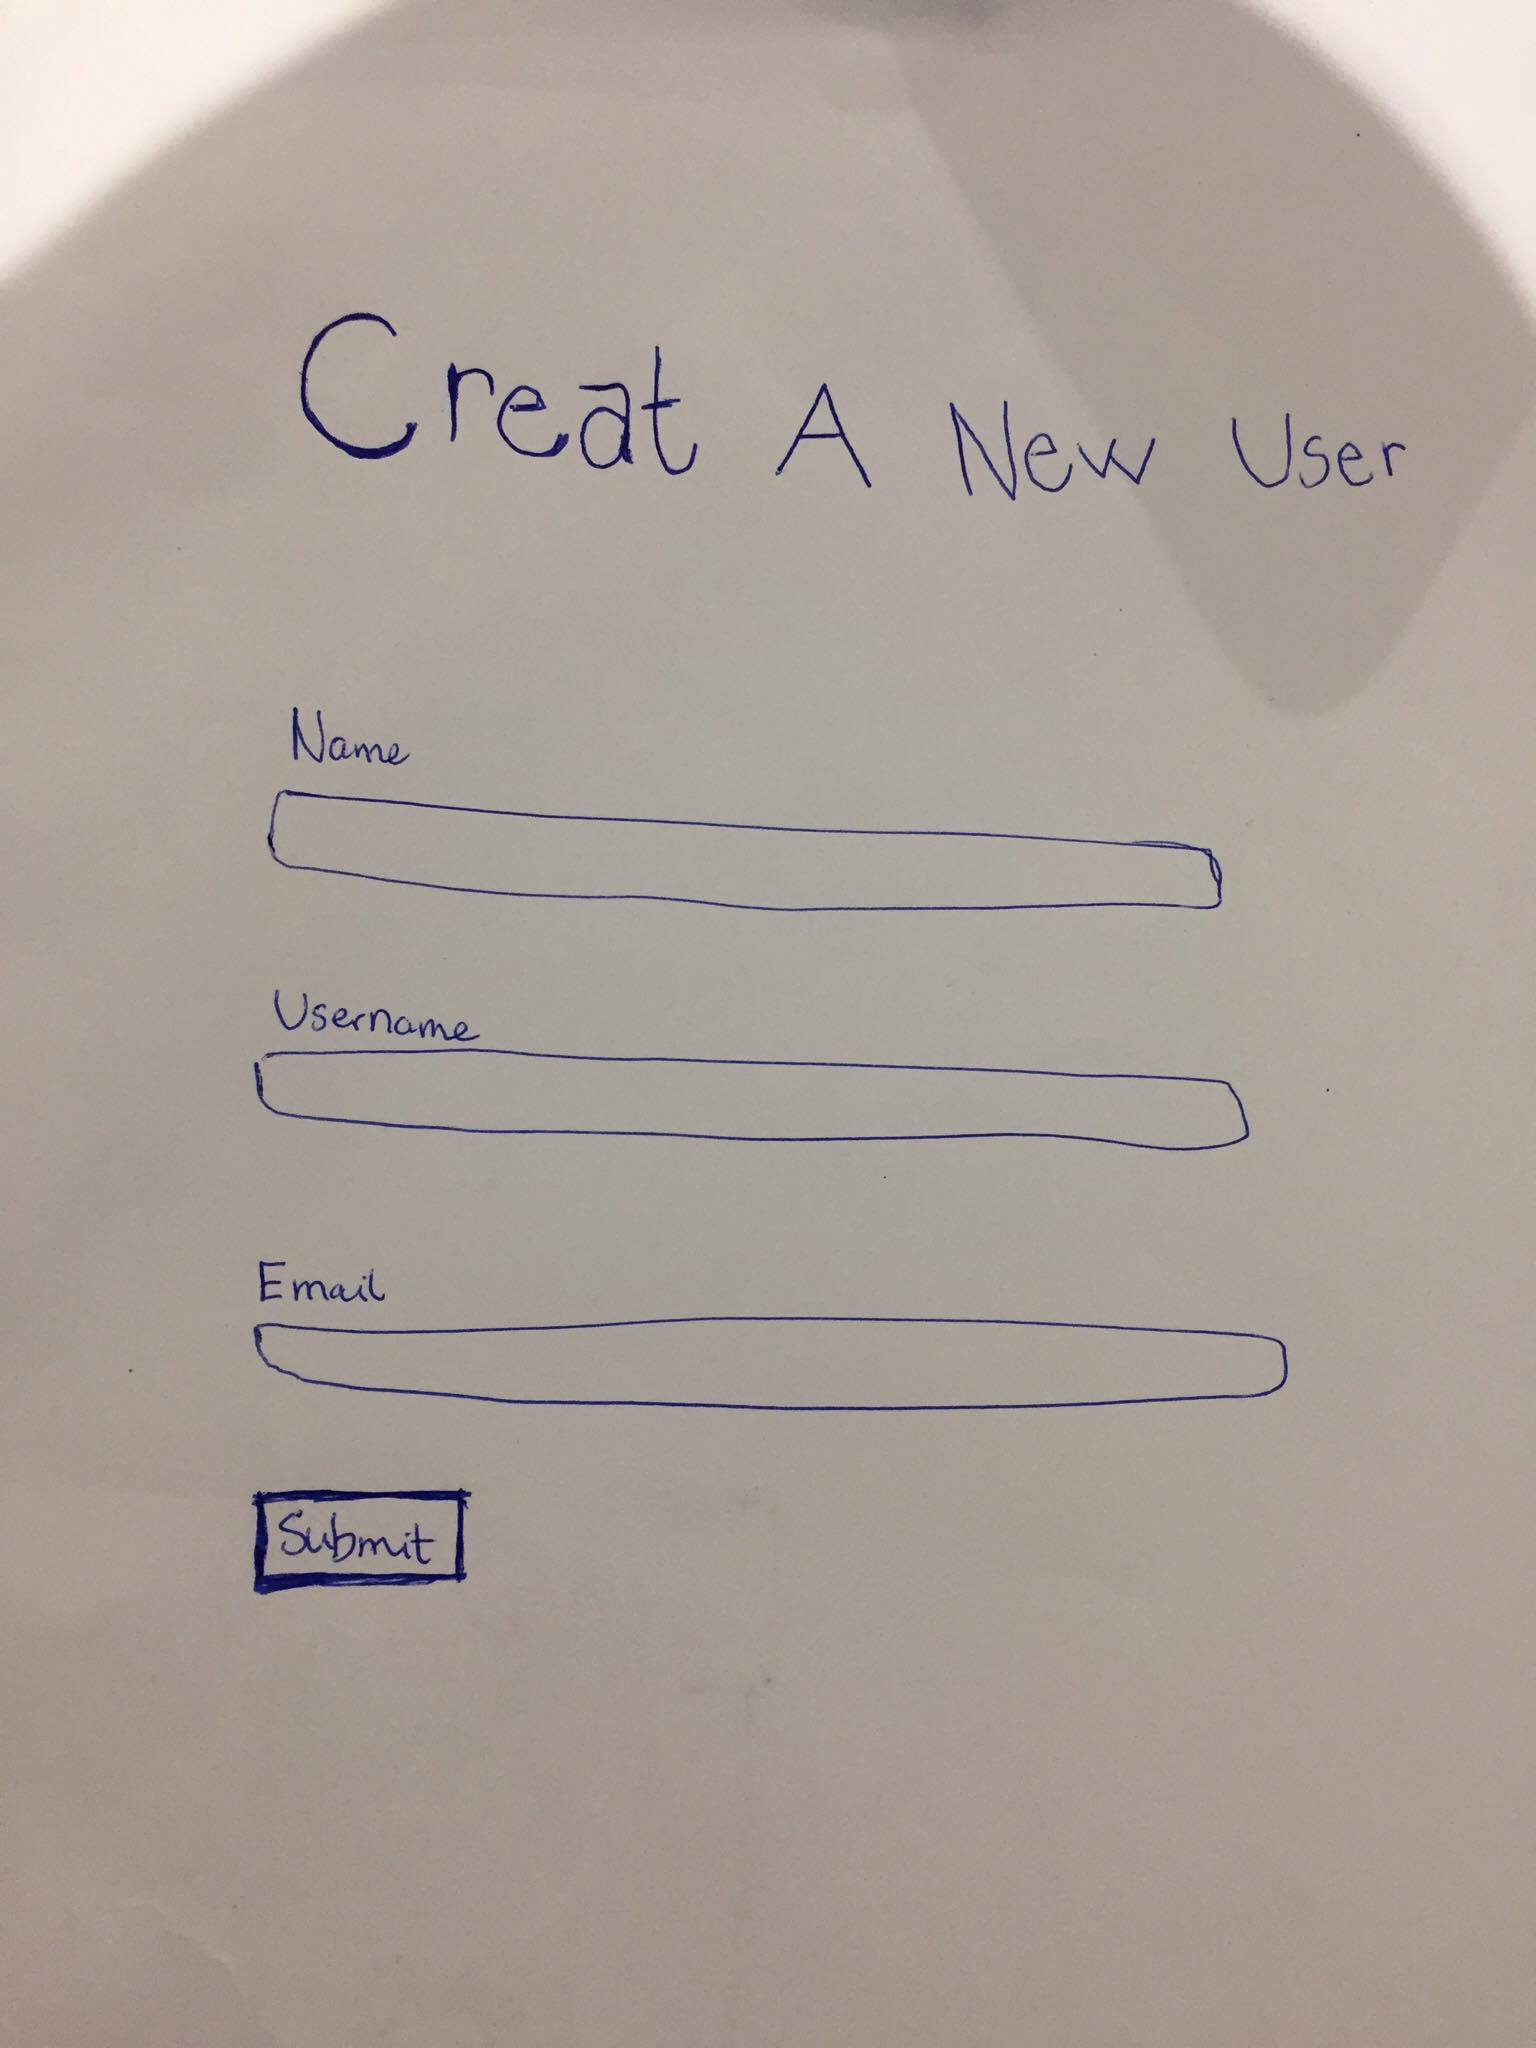 Creat A New User
Name
Username
Email
Submit